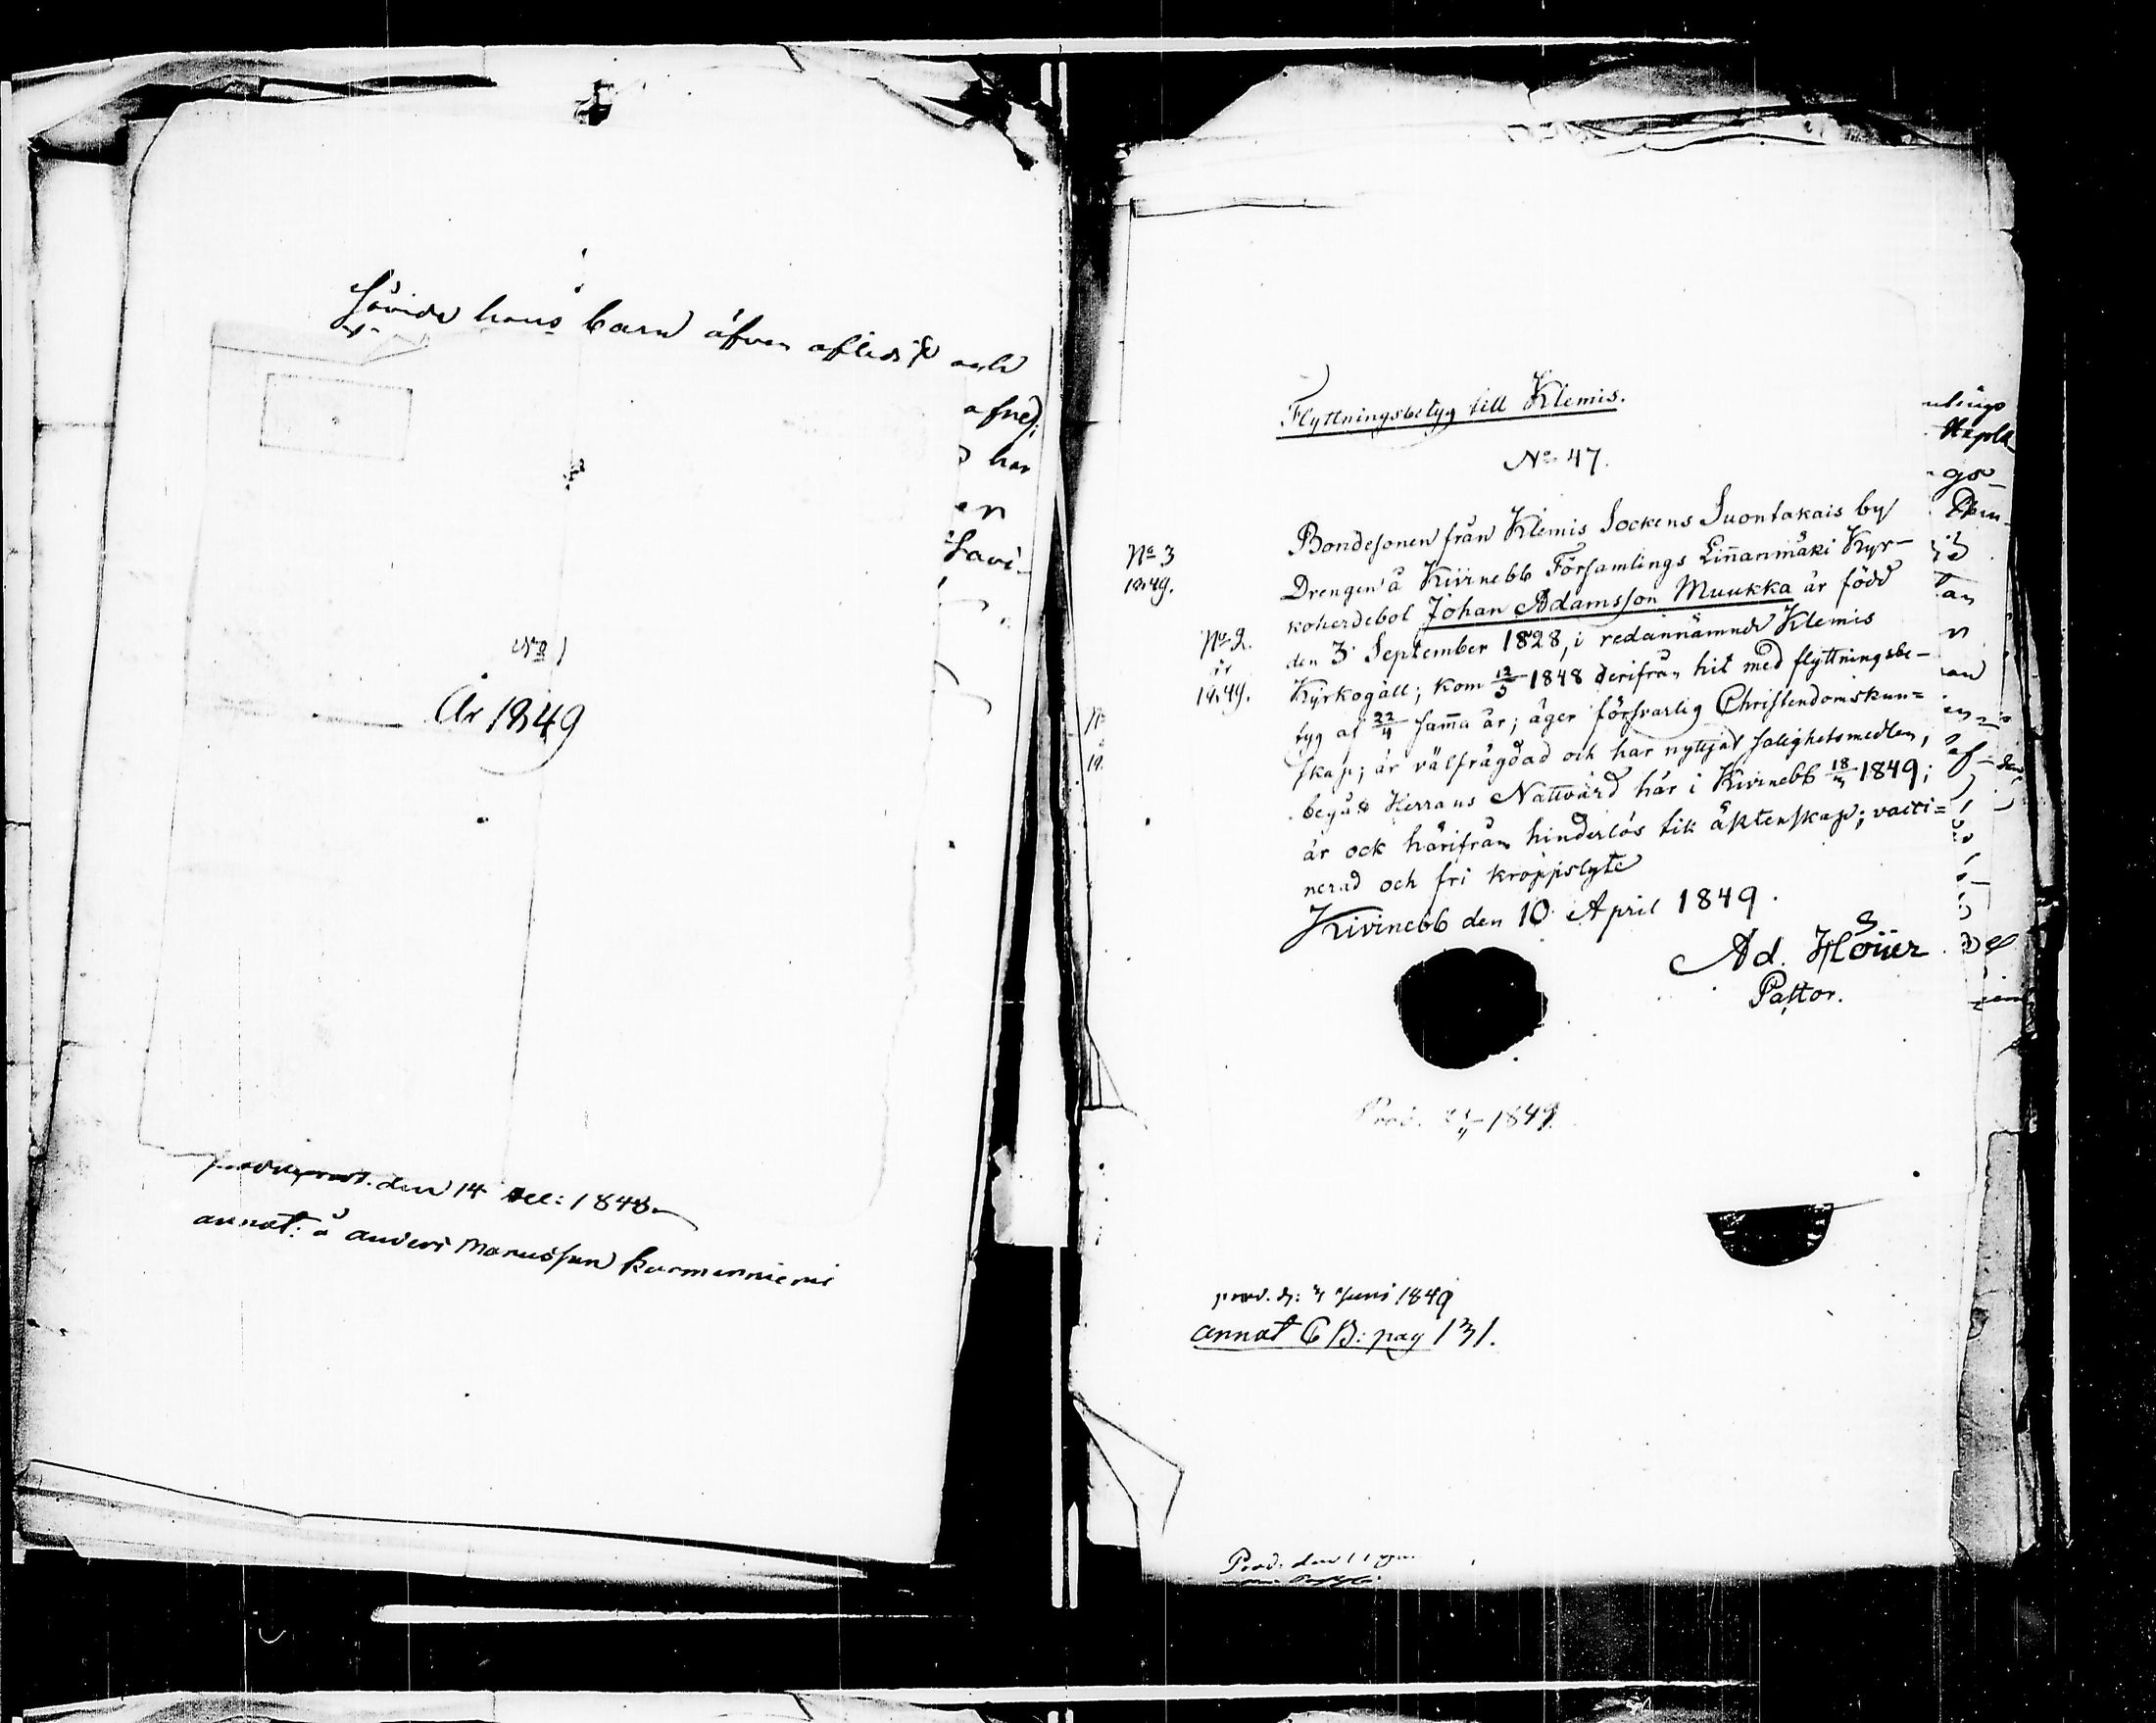 hans barn äfven aflidit och
har
en
No 1
År 1849
den 14 Dec: 1848
annat: å Anders Kurmenniemi
Flyttningsbetyg till Klemis.
No 47.
No 3
1849.
No 2.
är
1849.
Bondesonen från Klemis Sockens Suontakais by
Drengen å Kiirnebb Församlings Linnanmäki Kyr-
koherdebol Johan Adamsson Muukka är född
den 3 September 1828, i redannämnde Klemis
Kyrkogäll; kom 12/5 1848 derifrån hit med flyttningsbe-
tyg af 22/4 samma år; äger försvarlig Christendomskun=
skap; är välfrägdad och har nyttjat salighetsmedlen,
begått Herrans Nattvard här i Kivinebb 18/3 1849;
är ock härifrån hinderlös till äktenskap; vacci=
nerad och fri kroppslyte
Kivinebb den 10 April 1849.
Ad. Höijer
Pastor.
1849.
prod. d: 3 Juni 1849
annat C B: pag 131.
Prod. den